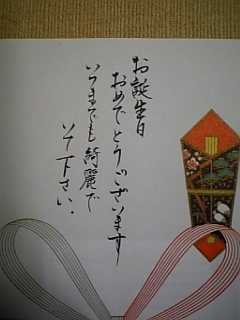 お誕生日
おめでとうございます
いつまでも綺麗で
いて下さい。